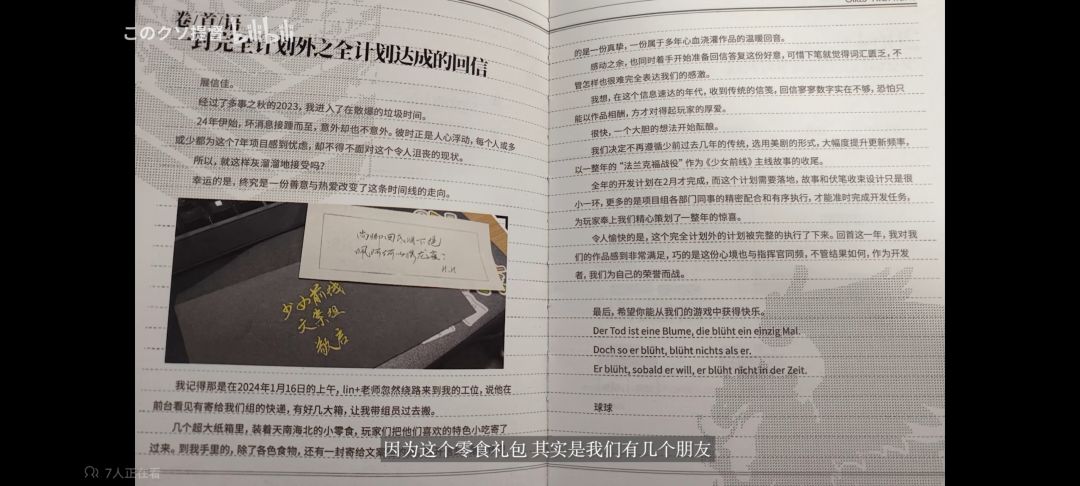 卷/首/语
このクソ提督
封完全计划外之全计划达成的回信
展信佳。
经过了多事之秋的2023，我进入了在散爆的垃圾时间。
24年伊始，坏消息接踵而至，意外却也不意外。彼时正是人心浮动，每个人或多
或少都为这个7年项目感到忧虑，却不得不面对这个令人沮丧的现状。
所以，就这样灰溜溜地接受吗？
幸运的是，终究是一份善意与热爱改变了这条时间线的走向。
少女前线
文案组
敬启
我记得那是在2024年1月16日的上午，lin+老师忽然绕路来到我的工位，说他在
前台看见有寄给我们组的快递，有好几大箱，让我带组员过去搬。
几个超大纸箱里，装着天南海北的小零食，玩家们把他们喜欢的特色小吃寄了
过来。到我手里的，除了各色食物，还有一封寄给文案
的是一份真挚，一份属于多年心血浇灌作品的温暖回音。
感动之余，也同时着手开始准备回信答复这份好意，可惜下笔就觉得词汇匮乏，不
管怎样也很难完全表达我们的感激。
我想，在这个信息速达的年代，收到传统的信笺，回信寥寥数字实在不够，恐怕只
能以作品相酬，方才对得起玩家的厚爱。
很快，一个大胆的想法开始酝酿。
我们决定不再遵循少前过去几年的传统，选用美剧的形式，大幅度提升更新频率，
以一整年的“法兰克福战役”作为《少女前线》主线故事的收尾。
全年的开发计划在2月才完成，而这个计划需要落地，故事和伏笔收束设计只是很
小一环，更多的是项目组各部门同事的精密配合和有序执行，才能准时完成开发任务，
为玩家奉上我们精心策划了一整年的惊喜。
令人愉快的是，这个完全计划外的计划被完整的执行了下来。回首这一年，我对我
们的作品感到非常满足，巧的是这份心境也与指挥官同频，不管结果如何，作为开发
者，我们为自己的荣誉而战。
最后，希望你能从我们的游戏中获得快乐。
Der Tod ist eine Blume, die blüht ein einzig Mal.
Doch so er blüht, blüht nichts als er.
Er blüht, sobald er will, er blüht nicht in der Zeit.
球球
因为这个零食礼包 其实是我们有几个朋友
7人正在看